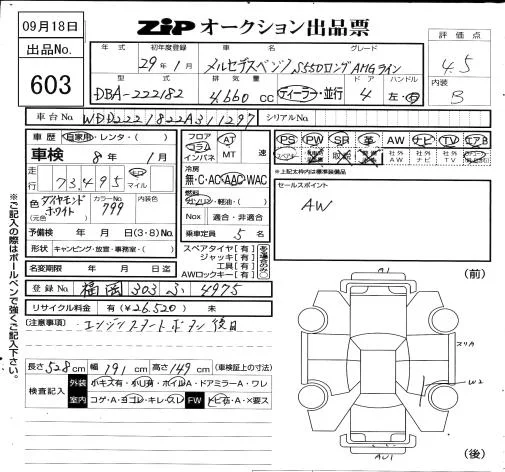 09月18日
ZIP オークション出品票
出品No.
603
年式 初年度登録 車名 グレード
29年1月 メルセデスベンツ S550ロング AMGライン
評価点
4.5
内装
B
型式 排気量 ドア ハンドル
DBA-222182 4.660 cc ディーラー・並行 4 左・右
車台No. WDD2221822A311297 シリアルNo.
車歴 自家用・レンタ・( )
車検 8年 1月
走行 73,495 km マイル
色(元色) ダイヤモンドホワイト カラーNo. 799 内装色
予備検 年 月 日(3・8)No.
形状 キャンピング・放宣・事務室・( )
名変期限 年 月 日迄
フロア コラム インパネ AT MT 速
冷房 無・C・AC・AAC・WAC
燃料 ガソリン・軽油・( )
Nox 適合・非適合
乗車定員 5 名
スペアタイヤ[有]
ジャッキ[有]
工具[有]
AWロックキー[有]
ある場合のみ○
PS PW SR 革 AW ナビ TV エアB
スペアキー 取説 社外AW 社外ナビ 社外TV
*上記太枠内は標準装備品
セールスポイント
AW
登録No. 福岡 303 ふ 4975
リサイクル料金 有(¥26,520) 未
(注意事項) エンジンスタートボタン後日
長さ 528 cm 幅 191 cm 高さ 149 cm (車検証上の寸法)
検査記入
外装 小キズ有・小U有・ホイルA・ドアミラーA・ワレ
室内 コゲ・A・ヨゴレ・キレ・スレ FW トビ石・A・×要ス
※ご記入の際はボールペンで強くご記入下さい。
(前)
A1
スリA
W2
AU1
(後)